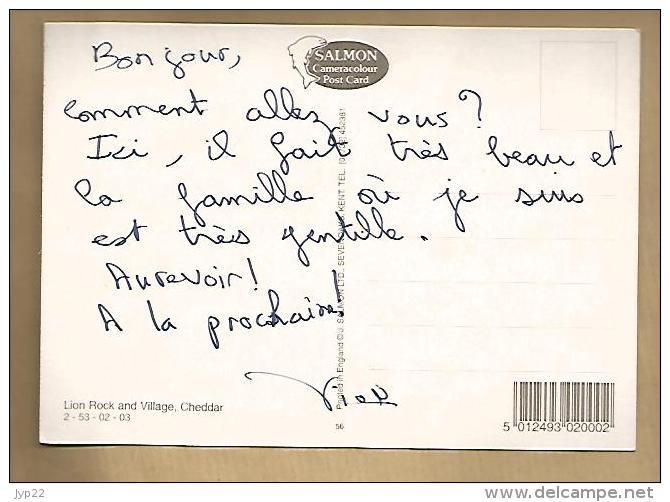 Bonjour,
SALMON
Cameracolour
Post Card
comment allez vous?
Ici, il fait très beau et
la famille où je suis
est très gentille.
Aurevoir!
A la prochaine!
Printed in England © J. SALMON LTD., SEVENOAKS, KENT. TEL. 452381
Lion Rock and Village, Cheddar
2 - 53 - 02 - 03
56
5 012493 020002
jyp22
www.delcampe.net